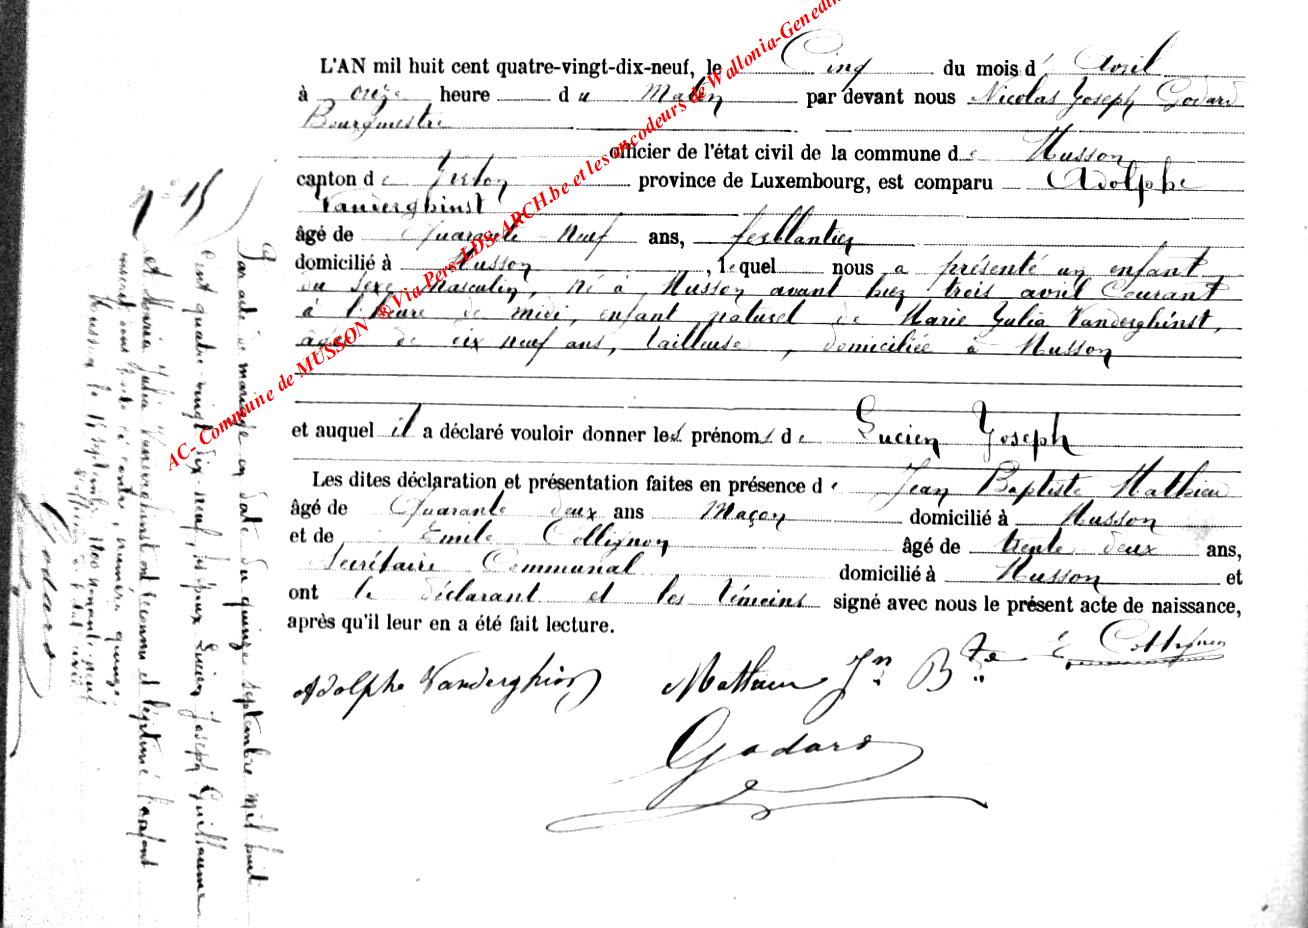 L'AN mil huit cent quatre-vingt-dix-neuf, le Cinq du mois d' Avril
à onze heure du Matin par devant nous Nicolas Joseph Godard
Bourgmestre
officier de l'état civil de la commune de Musson
canton de Virton province de Luxembourg, est comparu Adolphe
Vanderghinst
âgé de Quarante Neuf ans, ferblantier
domicilié à Musson, lequel nous a présenté un enfant
du sexe Masculin, né à Musson avant hier trois avril Courant
à l'heure de midi, enfant naturel de Marie Julia Vanderghinst,
âgée de dix neuf ans, tailleuse, domiciliée à Musson
et auquel il a déclaré vouloir donner les prénoms de Lucien Joseph
Les dites déclaration et présentation faites en présence de Jean Baptiste Mathieu
âgé de Quarante deux ans Maçon domicilié à Musson
et de Emile Collignon âgé de trente deux ans,
Secrétaire Communal domicilié à Musson et
ont le déclarant et les témoins signé avec nous le présent acte de naissance,
après qu'il leur en a été fait lecture.
Adolphe Vanderghinst Mathieu Jn Bte E Collignon
Godard
N° 15
Par acte de mariage en date du quinze septembre mil huit
cent quatre vingt dix neuf, les époux Lucien Joseph Guillaume
et Maria Julia Vanderghinst ont reconnu et légitimé l'enfant
inscrit sous l'acte ci contre, numéro quinze
Musson le 15 septembre 1800 nonante neuf
L'officier de l'état civil
Godard
AC- Commune de MUSSON ®Via Pers-LDS-ARCH.be et les encodeurs de Wallonia-Genedin